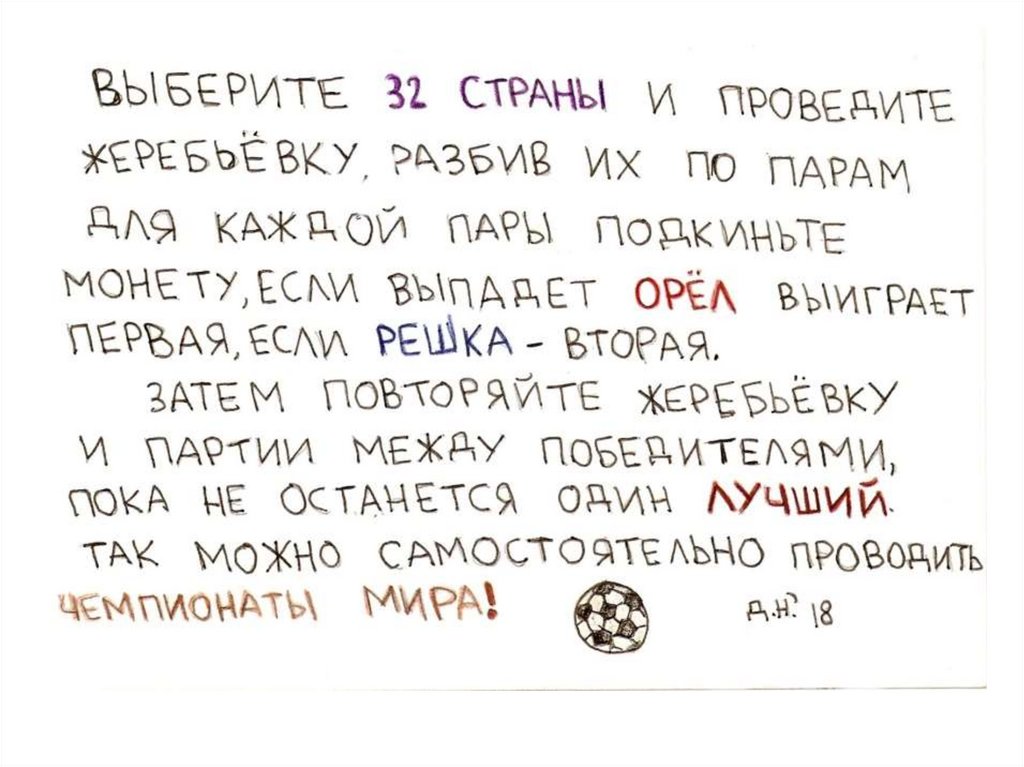 ВЫБЕРИТЕ 32 СТРАНЫ И ПРОВЕДИТЕ
ЖЕРЕБЬЁВКУ, РАЗБИВ ИХ ПО ПАРАМ
ДЛЯ КАЖДОЙ ПАРЫ ПОДКИНЬТЕ
МОНЕТУ, ЕСЛИ ВЫПАДЕТ ОРЁЛ ВЫИГРАЕТ
ПЕРВАЯ, ЕСЛИ РЕШКА - ВТОРАЯ.
ЗАТЕМ ПОВТОРЯЙТЕ ЖЕРЕБЬЁВКУ
И ПАРТИИ МЕЖДУ ПОБЕДИТЕЛЯМИ,
ПОКА НЕ ОСТАНЕТСЯ ОДИН ЛУЧШИЙ.
ТАК МОЖНО САМОСТОЯТЕЛЬНО ПРОВОДИТЬ
ЧЕМПИОНАТЫ МИРА!
Д.Н? 18